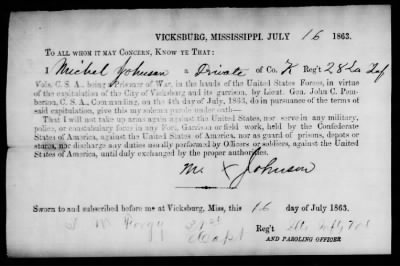 VICKSBURG, MISSISSIPPI. JULY 16 1863.
TO ALL WHOM IT MAY CONCERN, KNOW YE THAT:
I Michel Johnson a Private of Co. K Reg't 28 La Inf
Vols. C. S. A., being a Prisoner of War, in the hands of the United States Forces, in virtue
of the capitulation of the City of Vicksburg and its garrison, by Lieut. Gen. John C. Pem-
berton, C. S. A., Commanding, on the 4th day of July, 1863, do in pursuance of the terms of
said capitulation, give this my solemn parole under oath—
That I will not take up arms again against the United States, nor serve in any military,
police, or constabulary force in any Fort, Garrison or field work, held by the Confederate
States of America, against the United States of America, nor as guard of prisons, depots or
stores, nor discharge any duties usually performed by Officers or soldiers, against the United
States of America, until duly exchanged by the proper authorities.
M. x Johnson
Sworn to and subscribed before me at Vicksburg, Miss, this 16 day of July 1863.
Reg't Vols
Capt
AND PAROLING OFFICER